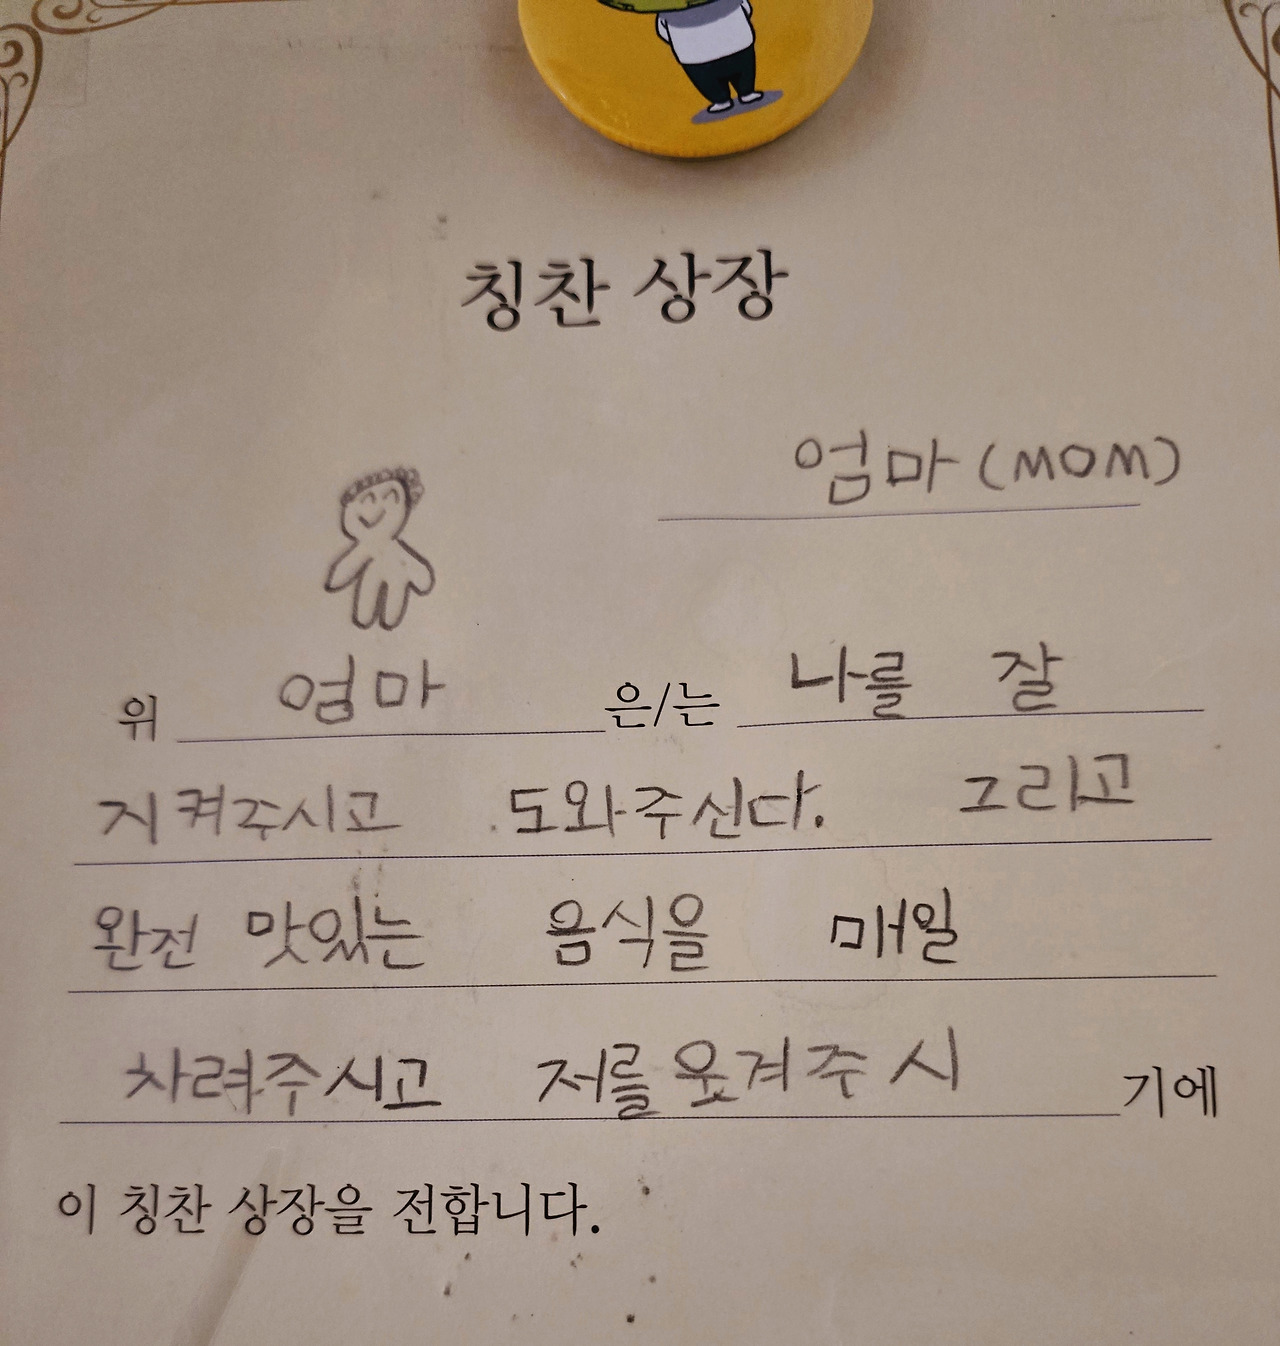 칭찬 상장
엄마 (MOM)
위 엄마 은/는 나를 잘
지켜주시고 도와주신다. 그리고
완전 맛있는 음식을 매일
차려주시고 저를 웃겨주시 기에
이 칭찬 상장을 전합니다.